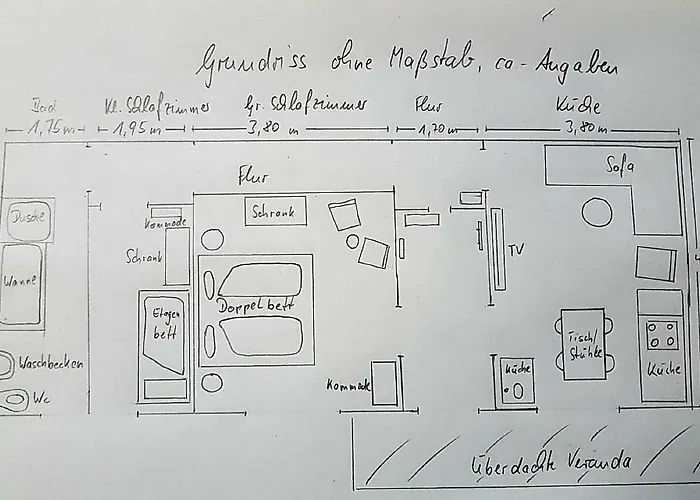 Grundriss ohne Maßstab, ca-Angaben
Bad Kl. Schlafzimmer Gr. Schlafzimmer Flur Küche
1,75 m 1,95 m 3,80 m 1,20 m 3,80 m
Flur
Sofa
Dusche
Kommode
Schrank
Schrank
TV
Wanne
Etagen
bett
Doppelbett
Tisch/
Stühle
Waschbecken
Küche
Küche
Kommode
Wc
überdachte Veranda